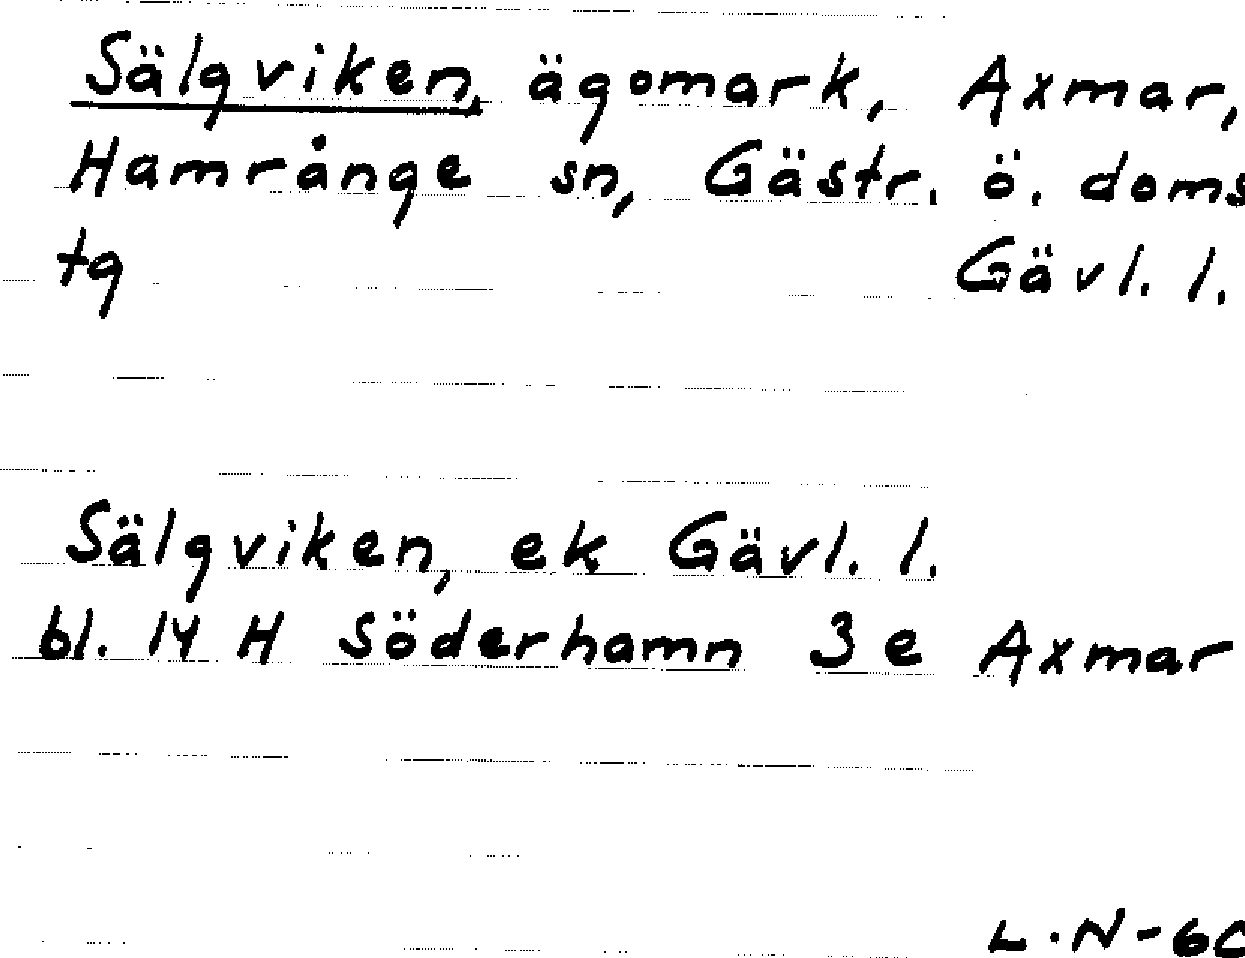 Sälgviken, ägomark, Axmar,
Hamrånge sn, Gästr. ö. doms
tg Gävl. l.
Sälgviken, ek Gävl. l.
bl. 14 H Söderhamn 3 e Axmar
L.N-60